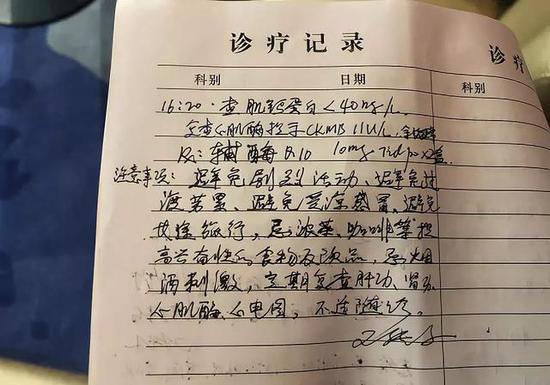 诊疗记录
诊疗
科别 日期
科别
16:20. 查肌钙蛋白<40ng/L
全查心肌酶 CKMB 11U/L,
R: 辅酶Q10 10mg Tid po x2盒
注意事项: 避免剧烈活动、避免过
度劳累、避免受凉感冒、避免
长途旅行, 忌浓茶、咖啡等提
高兴奋性的食物及饮品, 忌烟
酒刺激, 定期复查肝功、肾功、
心肌酶、心电图, 不适随诊。